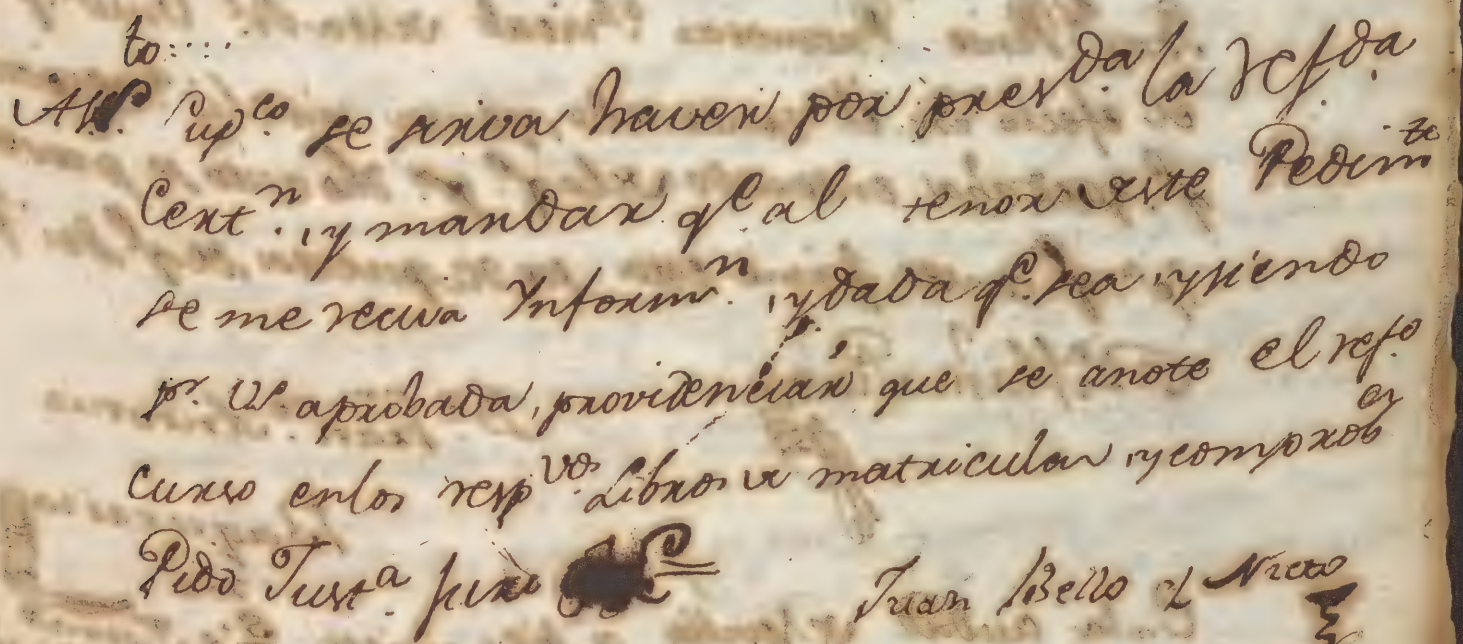 to....
A V.S. Sup.co se sirva haver por pres.da la refda.
Cert.n, y mandar q.e al tenor de este Pedim.to
se me reciva Ynform.n, y dada q.e sea, y siendo
p.r V.S. aprobada, providenciar que se anote el ref.o
curso en los resp.vos Libros de matriculas, y comprob.es
Pido Just.a juro &
Juan Bello el Nieto